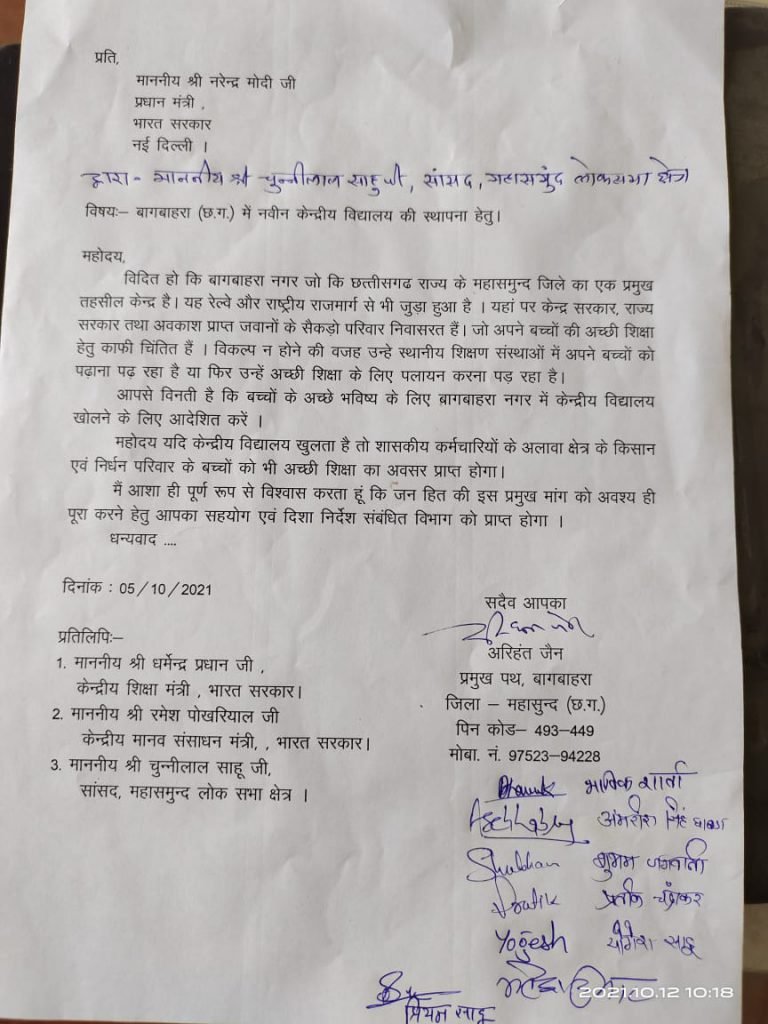 प्रति,
माननीय श्री नरेन्द्र मोदी जी
प्रधान मंत्री ,
भारत सरकार
नई दिल्ली ।
द्वारा - माननीय श्री चुन्नीलाल साहु जी, सांसद, महासमुंद लोकसभा क्षेत्र
विषयः– बागबाहरा (छ.ग.) में नवीन केन्द्रीय विद्यालय की स्थापना हेतु।
महोदय,
विदित हो कि बागबाहरा नगर जो कि छत्तीसगढ राज्य के महासमुन्द जिले का एक प्रमुख
तहसील केन्द्र है। यह रेल्वे और राष्ट्रीय राजमार्ग से भी जुड़ा हुआ है । यहां पर केन्द्र सरकार, राज्य
सरकार तथा अवकाश प्राप्त जवानों के सैकड़ो परिवार निवासरत हैं। जो अपने बच्चों की अच्छी शिक्षा
हेतु काफी चिंतित हैं । विकल्प न होने की वजह उन्हे स्थानीय शिक्षण संस्थाओं में अपने बच्चों को
पढ़ाना पढ़ रहा है या फिर उन्हें अच्छी शिक्षा के लिए पलायन करना पड़ रहा है।
आपसे विनती है कि बच्चों के अच्छे भविष्य के लिए बागबाहरा नगर में केन्द्रीय विद्यालय
खोलने के लिए आदेशित करें ।
महोदय यदि केन्द्रीय विद्यालय खुलता है तो शासकीय कर्मचारियों के अलावा क्षेत्र के किसान
एवं निर्धन परिवार के बच्चों को भी अच्छी शिक्षा का अवसर प्राप्त होगा।
मैं आशा ही पूर्ण रूप से विश्वास करता हूं कि जन हित की इस प्रमुख मांग को अवश्य ही
पूरा करने हेतु आपका सहयोग एवं दिशा निर्देश संबंधित विभाग को प्राप्त होगा ।
धन्यवाद ....
दिनांक : 05/10/2021
सदैव आपका
अरिहंत जैन
प्रमुख पथ, बागबाहरा
जिला – महासुन्द (छ.ग.)
पिन कोड– 493–449
मोबा. नं. 97523–94228
प्रतिलिपिः–
1. माननीय श्री धर्मेन्द्र प्रधान जी ,
केन्द्रीय शिक्षा मंत्री , भारत सरकार।
2. माननीय श्री रमेश पोखरियाल जी
केन्द्रीय मानव संसाधन मंत्री, , भारत सरकार।
3. माननीय श्री चुन्नीलाल साहू जी,
सांसद, महासमुन्द लोक सभा क्षेत्र ।
प्रतीक चंद्राकर
Yogesh योगेश साहू
साहू
2021.10.12 10:18